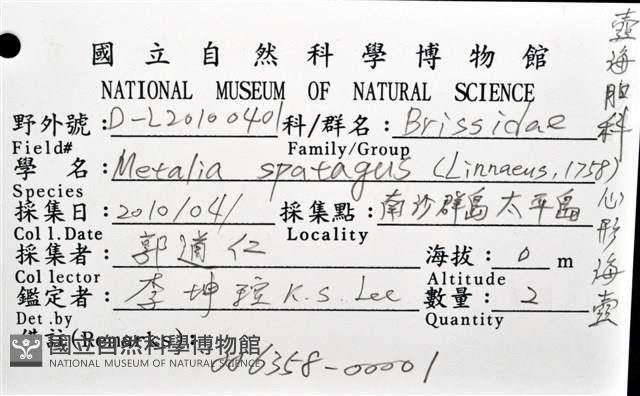 國立自然科學博物館
NATIONAL MUSEUM OF NATURAL SCIENCE
野外號：D-L20100401 科/群名：Brissidae
Field# Family/Group
學 名：Metalia spatagus (Linnaeus, 1758)
Species
採集日：2010/04/ 採集點：南沙群島太平島
Coll.Date Locality
採集者：郭道仁 海拔：0 m
Collector Altitude
鑑定者：李坤瑄 K.S. Lee 數量：2
Det.by Quantity
備註(Remarks)：
006358-00001
國立自然科學博物館
NATIONAL MUSEUM OF NATURAL SCIENCE
壺海胆科 心形海壺